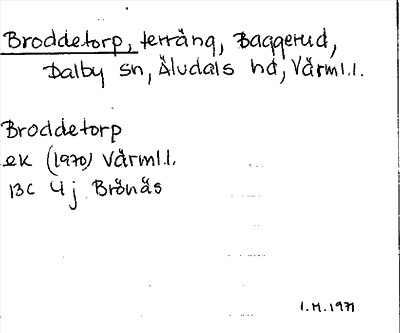 Broddetorp, terräng, Baggerud,
Dalby sn, Äludals hd, Värml.l.
Broddetorp
ek (1970) Värml.l.
13C 4j Brönäs
1.M.1971